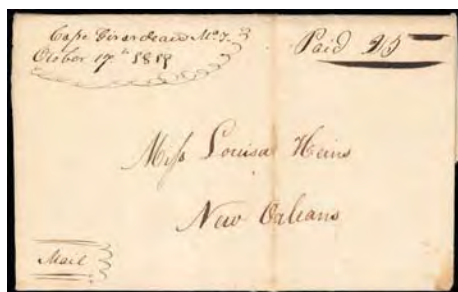 Cape Girardeau Mo. T.
October 17th 1819
Paid 25
Miss Louisa Heins
New Orleans
Mail